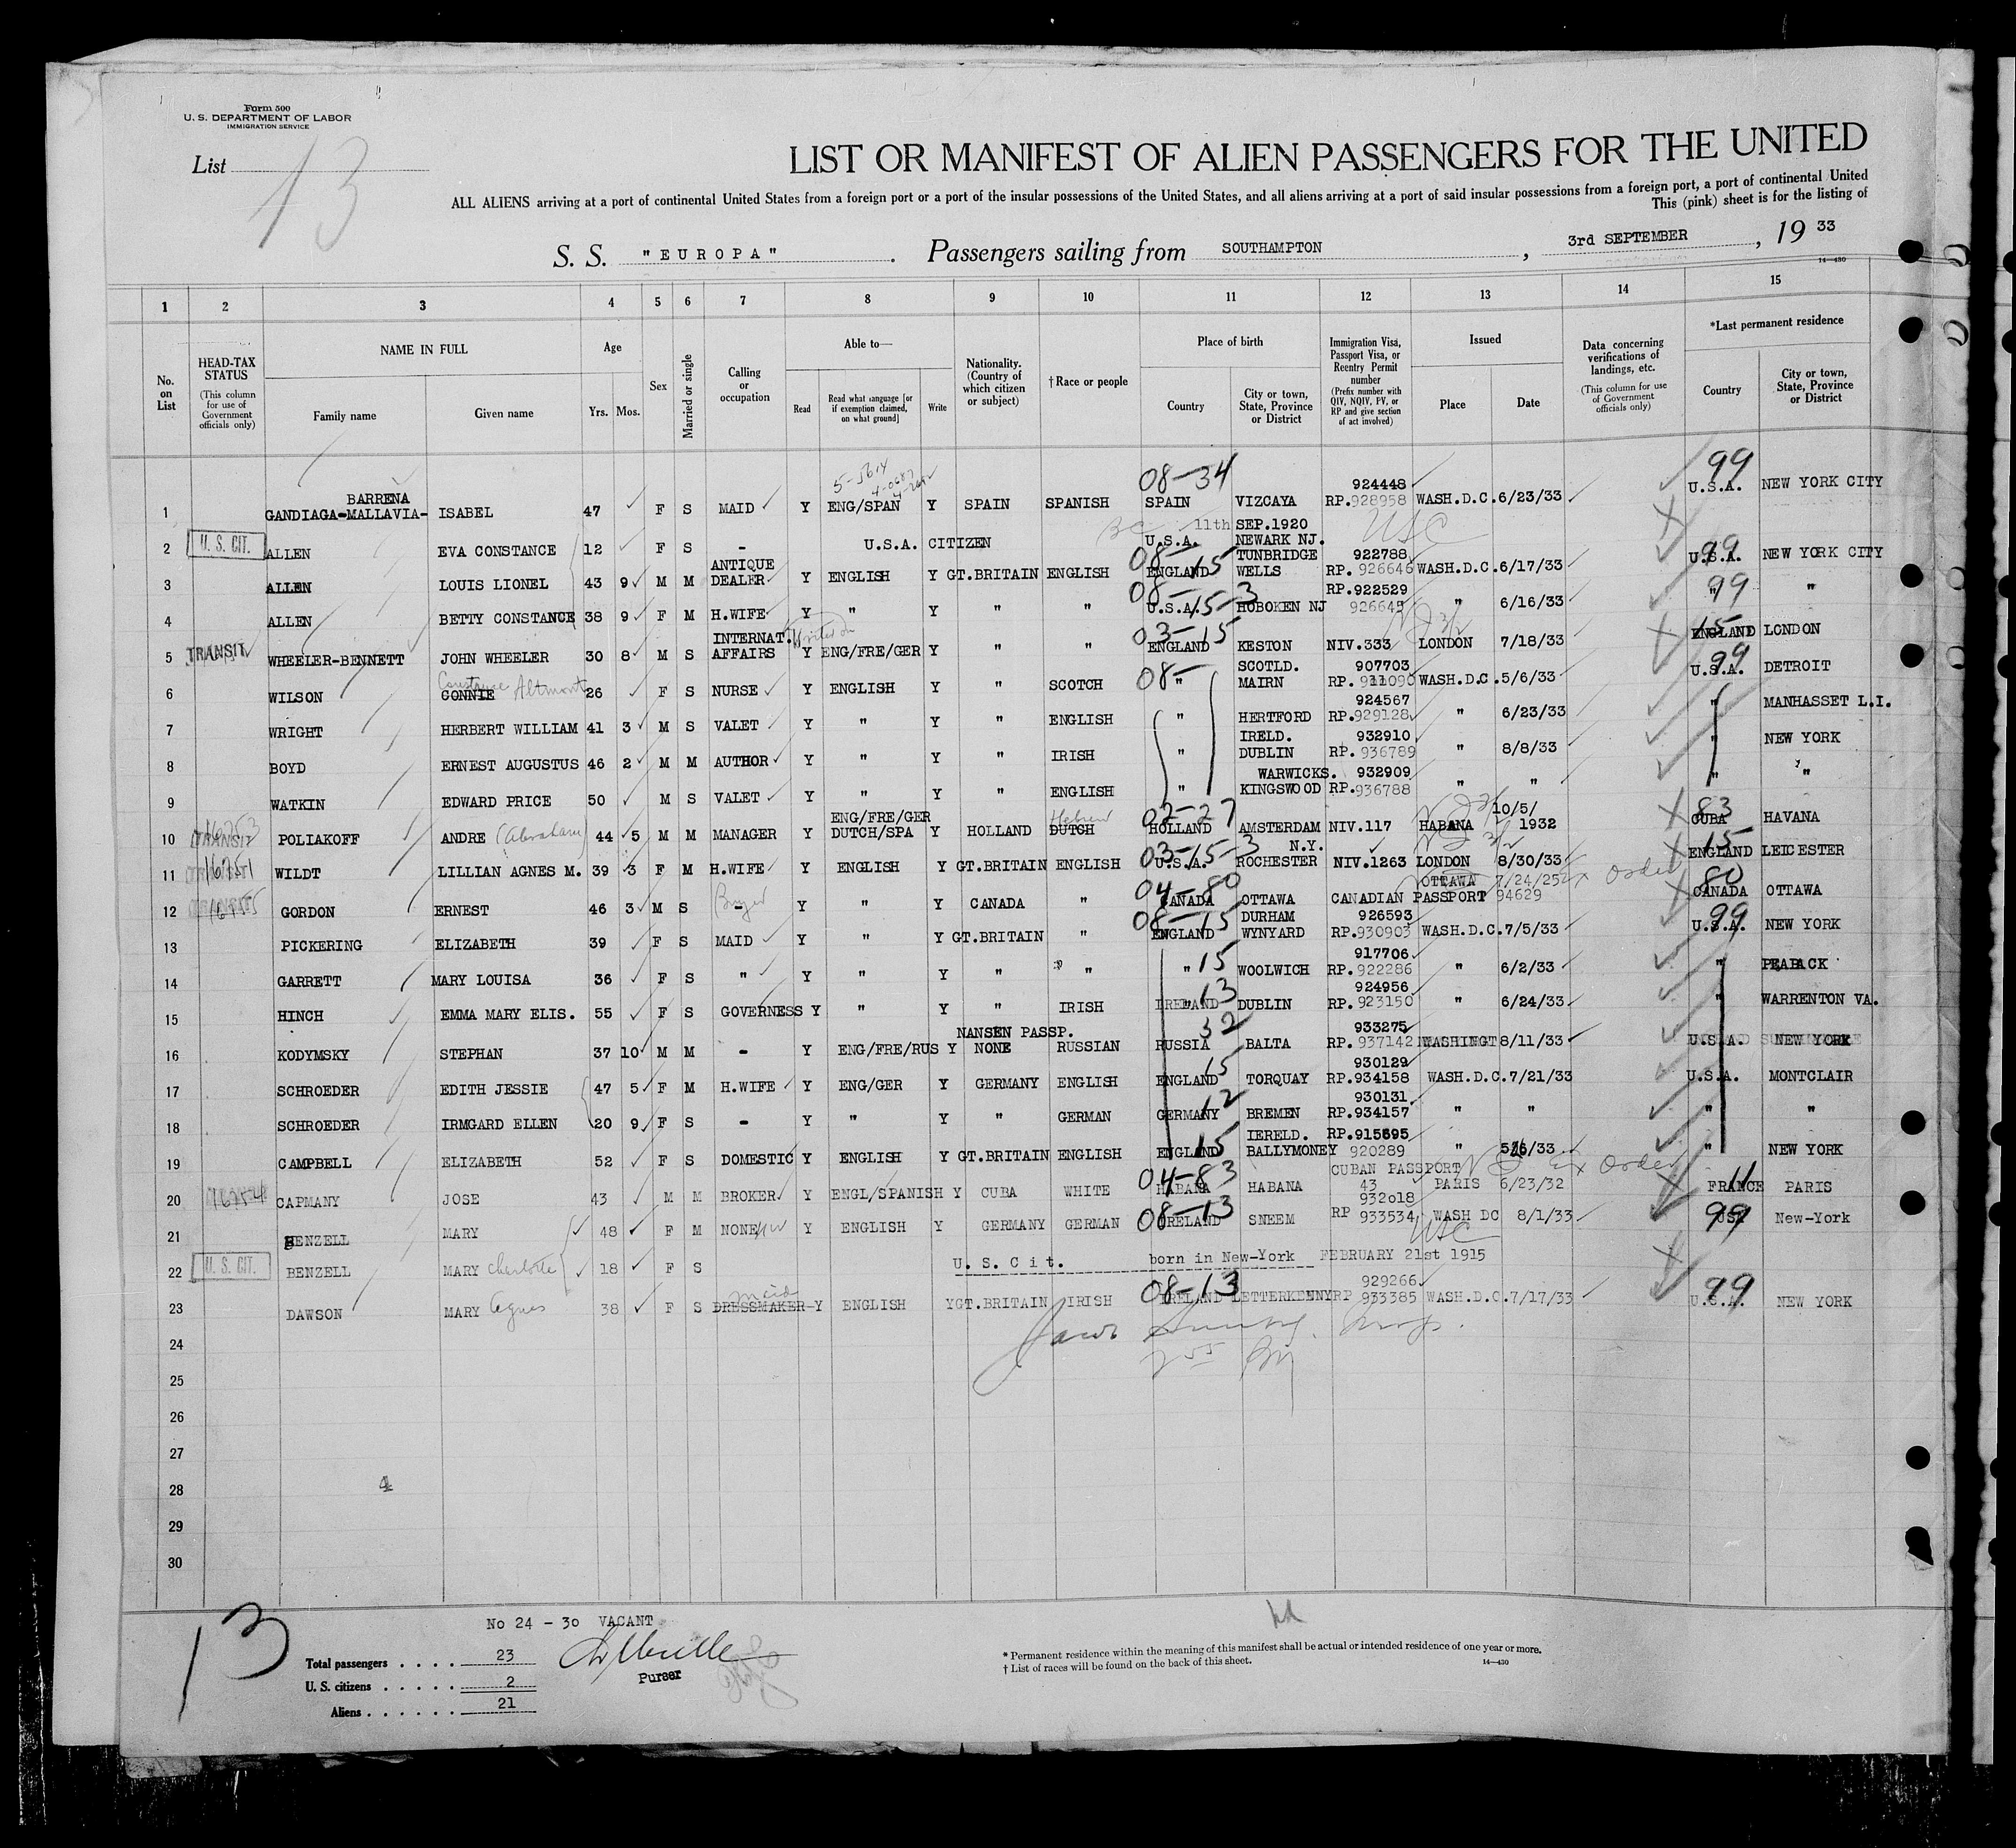 Form 500
U. S. DEPARTMENT OF LABOR
IMMIGRATION SERVICE
List 13
LIST OR MANIFEST OF ALIEN PASSENGERS FOR THE UNITED
ALL ALIENS arriving at a port of continental United States from a foreign port or a port of the insular possessions of the United States, and all aliens arriving at a port of said insular possessions from a foreign port, a port of continental United
This (pink) sheet is for the listing of
S. S. "EUROPA". Passengers sailing from SOUTHAMPTON, 3rd SEPTEMBER, 19 33
14-430
1 2 3 4 5 6 7 8 9 10 11 12 13 14 15
No. on List
HEAD-TAX STATUS (This column for use of Government officials only)
NAME IN FULL Family name Given name
Age Yrs. Mos.
Sex
Married or single
Calling or occupation
Able to— Read Read what language [or if exemption claimed, on what ground] Write
Nationality. (Country of which citizen or subject)
†Race or people
Place of birth Country City or town, State, Province or District
Immigration Visa, Passport Visa, or Reentry Permit number (Prefix number with QIV, NQIV, PV, or RP and give section of act involved)
Issued Place Date
Data concerning verifications of landings, etc. (This column for use of Government officials only)
*Last permanent residence Country City or town, State, Province or District
1 GANDIAGA-MALLAVIA-BARRENA ISABEL 47 F S MAID Y ENG/SPAN Y SPAIN SPANISH 08-34 SPAIN VIZCAYA 924448 RP.928958 WASH.D.C. 6/23/33 99 U.S.A. NEW YORK CITY
2 U. S. CIT. ALLEN EVA CONSTANCE 12 F S - U.S.A. CITIZEN 11th SEP.1920 U.S.A. NEWARK NJ. USC
3 ALLEN LOUIS LIONEL 43 9 M M ANTIQUE DEALER Y ENGLISH Y GT.BRITAIN ENGLISH 08-15 ENGLAND TUNBRIDGE WELLS 922788 RP. 926646 WASH.D.C. 6/17/33 99 U.S.A. NEW YORK CITY
4 ALLEN BETTY CONSTANCE 38 9 F M H.WIFE Y " Y " " 08-15-3 U.S.A. HOBOKEN NJ RP.922529 926645 " 6/16/33 99 " "
5 TRANSIT WHEELER-BENNETT JOHN WHEELER 30 8 M S INTERNAT. AFFAIRS Y ENG/FRE/GER Y " " 03-15 ENGLAND KESTON NIV.333 LONDON 7/18/33 15 ENGLAND LONDON
6 WILSON CONNIE Constance Altmont 26 F S NURSE Y ENGLISH Y " SCOTCH 08- " SCOTLD. MAIRN 907703 RP. 911090 WASH.D.C. 5/6/33 99 U.S.A. DETROIT
7 WRIGHT HERBERT WILLIAM 41 3 M S VALET Y " Y " ENGLISH " HERTFORD 924567 RP.929128 " 6/23/33 " MANHASSET L.I.
8 BOYD ERNEST AUGUSTUS 46 2 M M AUTHOR Y " Y " IRISH " IRELD. DUBLIN 932910 RP. 936789 " 8/8/33 " NEW YORK
9 WATKIN EDWARD PRICE 50 M S VALET Y " Y " ENGLISH " WARWICKS. KINGSWOOD 932909 RP.936788 " " " "
10 TRANSIT POLIAKOFF ANDRE (Abraham) 44 5 M M MANAGER Y ENG/FRE/GER DUTCH/SPA Y HOLLAND DUTCH Hebrew 02-27 HOLLAND AMSTERDAM NIV.117 HABANA 10/5/1932 83 CUBA HAVANA
11 WILDT LILLIAN AGNES M. 39 3 F M H.WIFE Y ENGLISH Y GT.BRITAIN ENGLISH 03-15-3 U.S.A. N.Y. ROCHESTER NIV.1263 LONDON 8/30/33 15 ENGLAND LEICESTER
12 GORDON ERNEST 46 3 M S - Buyer Y " Y CANADA " 04-80 CANADA OTTAWA CANADIAN PASSPORT 94629 OTTAWA 7/24/25 Ex Order 80 CANADA OTTAWA
13 PICKERING ELIZABETH 39 F S MAID Y " Y GT.BRITAIN " 08-15 ENGLAND DURHAM WYNYARD 926593 RP.930903 WASH.D.C. 7/5/33 99 U.S.A. NEW YORK
14 GARRETT MARY LOUISA 36 F S " Y " Y " " " 15 WOOLWICH 917706 RP. 922286 " 6/2/33 " PEAPACK
15 HINCH EMMA MARY ELIS. 55 F S GOVERNESS Y " Y " IRISH IRELAND 13 DUBLIN 924956 RP. 923150 " 6/24/33 " WARRENTON VA.
16 KODYMSKY STEPHAN 37 10 M M - Y ENG/FRE/RUS Y NANSEN PASSP. NONE RUSSIAN 32 RUSSIA BALTA 933275 RP. 937142 WASHINGT 8/11/33 U.S.A. NEW YORK
17 SCHROEDER EDITH JESSIE 47 5 F M H.WIFE Y ENG/GER Y GERMANY ENGLISH 15 ENGLAND TORQUAY 930129 RP.934158 WASH.D.C. 7/21/33 U.S.A. MONTCLAIR
18 SCHROEDER IRMGARD ELLEN 20 9 F S - Y " Y " GERMAN 12 GERMANY BREMEN 930131 RP.934157 " " " "
19 CAMPBELL ELIZABETH 52 F S DOMESTIC Y ENGLISH Y GT.BRITAIN ENGLISH 15 ENGLAND IERELD. BALLYMONEY RP.915695 920289 " 5/6/33 " NEW YORK
20 CAPMANY JOSE 43 M M BROKER Y ENGL/SPANISH Y CUBA WHITE 04-83 HABANA HABANA CUBAN PASSPORT 43 PARIS 6/23/32 Ex Order 11 FRANCE PARIS
21 BENZELL MARY 48 F M NONE HW Y ENGLISH Y GERMANY GERMAN 08-13 IRELAND SNEEM 932018 RP 933534 WASH DC 8/1/33 99 USA New-York
22 U. S. CIT. BENZELL MARY Charlotte 18 F S U. S. Cit. born in New-York FEBRUARY 21st 1915 USC
23 DAWSON MARY Agnes 38 F S DRESSMAKER maid Y ENGLISH Y GT.BRITAIN IRISH 08-13 IRELAND LETTERKENNY 929266 RP 933385 WASH.D.C. 7/17/33 99 U.S.A. NEW YORK
24
25
26
27
28 4
29
30
No 24 - 30 VACANT
13
Total passengers . . . . 23
U. S. citizens . . . . . 2
Aliens . . . . . . 21
Purser
* Permanent residence within the meaning of this manifest shall be actual or intended residence of one year or more.
† List of races will be found on the back of this sheet.
14-430